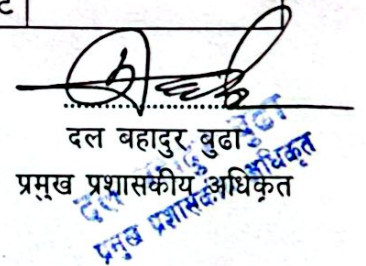 दल बहादुर बुढा
प्रमुख प्रशासकीय अधिकृत
दल बहादुर बुढा
प्रमुख प्रशासकीय अधिकृत